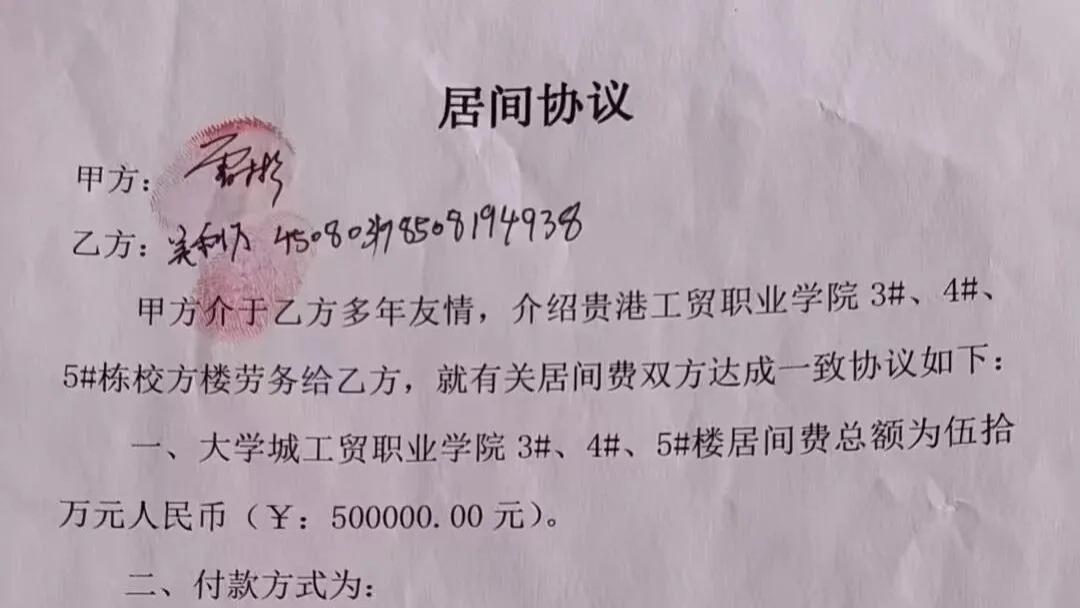 居间协议
甲方：
乙方：吴利 450803198508194938
甲方介于乙方多年友情，介绍贵港工贸职业学院 3#、4#、
5#栋校方楼劳务给乙方，就有关居间费双方达成一致协议如下：
一、大学城工贸职业学院 3#、4#、5#楼居间费总额为伍拾
万元人民币（￥：500000.00 元）。
二、付款方式为：